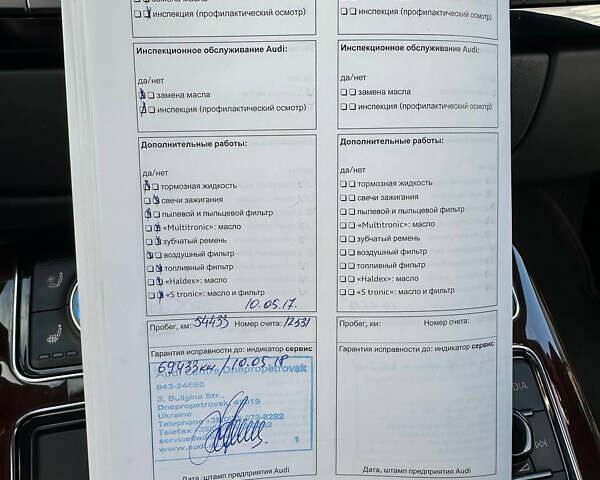 замена масла
инспекция (профилактический осмотр)
Инспекционное обслуживание Audi:
да/нет
замена масла
инспекция (профилактический осмотр)
Дополнительные работы:
да/нет
тормозная жидкость
свечи зажигания
пылевой и пыльцевой фильтр
«Multitronic»: масло
зубчатый ремень
воздушный фильтр
топливный фильтр
«Haldex»: масло
«S tronic»: масло и фильтр
10.05.17.
Пробег, км: 54433 Номер счета: 12531
Гарантия исправности до: индикатор сервис
69433км / 10.05.18
Audi Centre Dnepropetrovsk
943-24660
3, Buligina Str.,
Dnepropetrovsk, 49019
Ukraine
Telephone
Telefax
www.audi
1
Дата, штамп предприятия Audi
инспекция (профилактический осмотр)
Инспекционное обслуживание Audi:
да/нет
замена масла
инспекция (профилактический осмотр)
Дополнительные работы:
да/нет
тормозная жидкость
свечи зажигания
пылевой и пыльцевой фильтр
«Multitronic»: масло
зубчатый ремень
воздушный фильтр
топливный фильтр
«Haldex»: масло
«S tronic»: масло и фильтр
Пробег, км: Номер счета:
Гарантия исправности до: индикатор сервис
Дата, штамп предприятия Audi